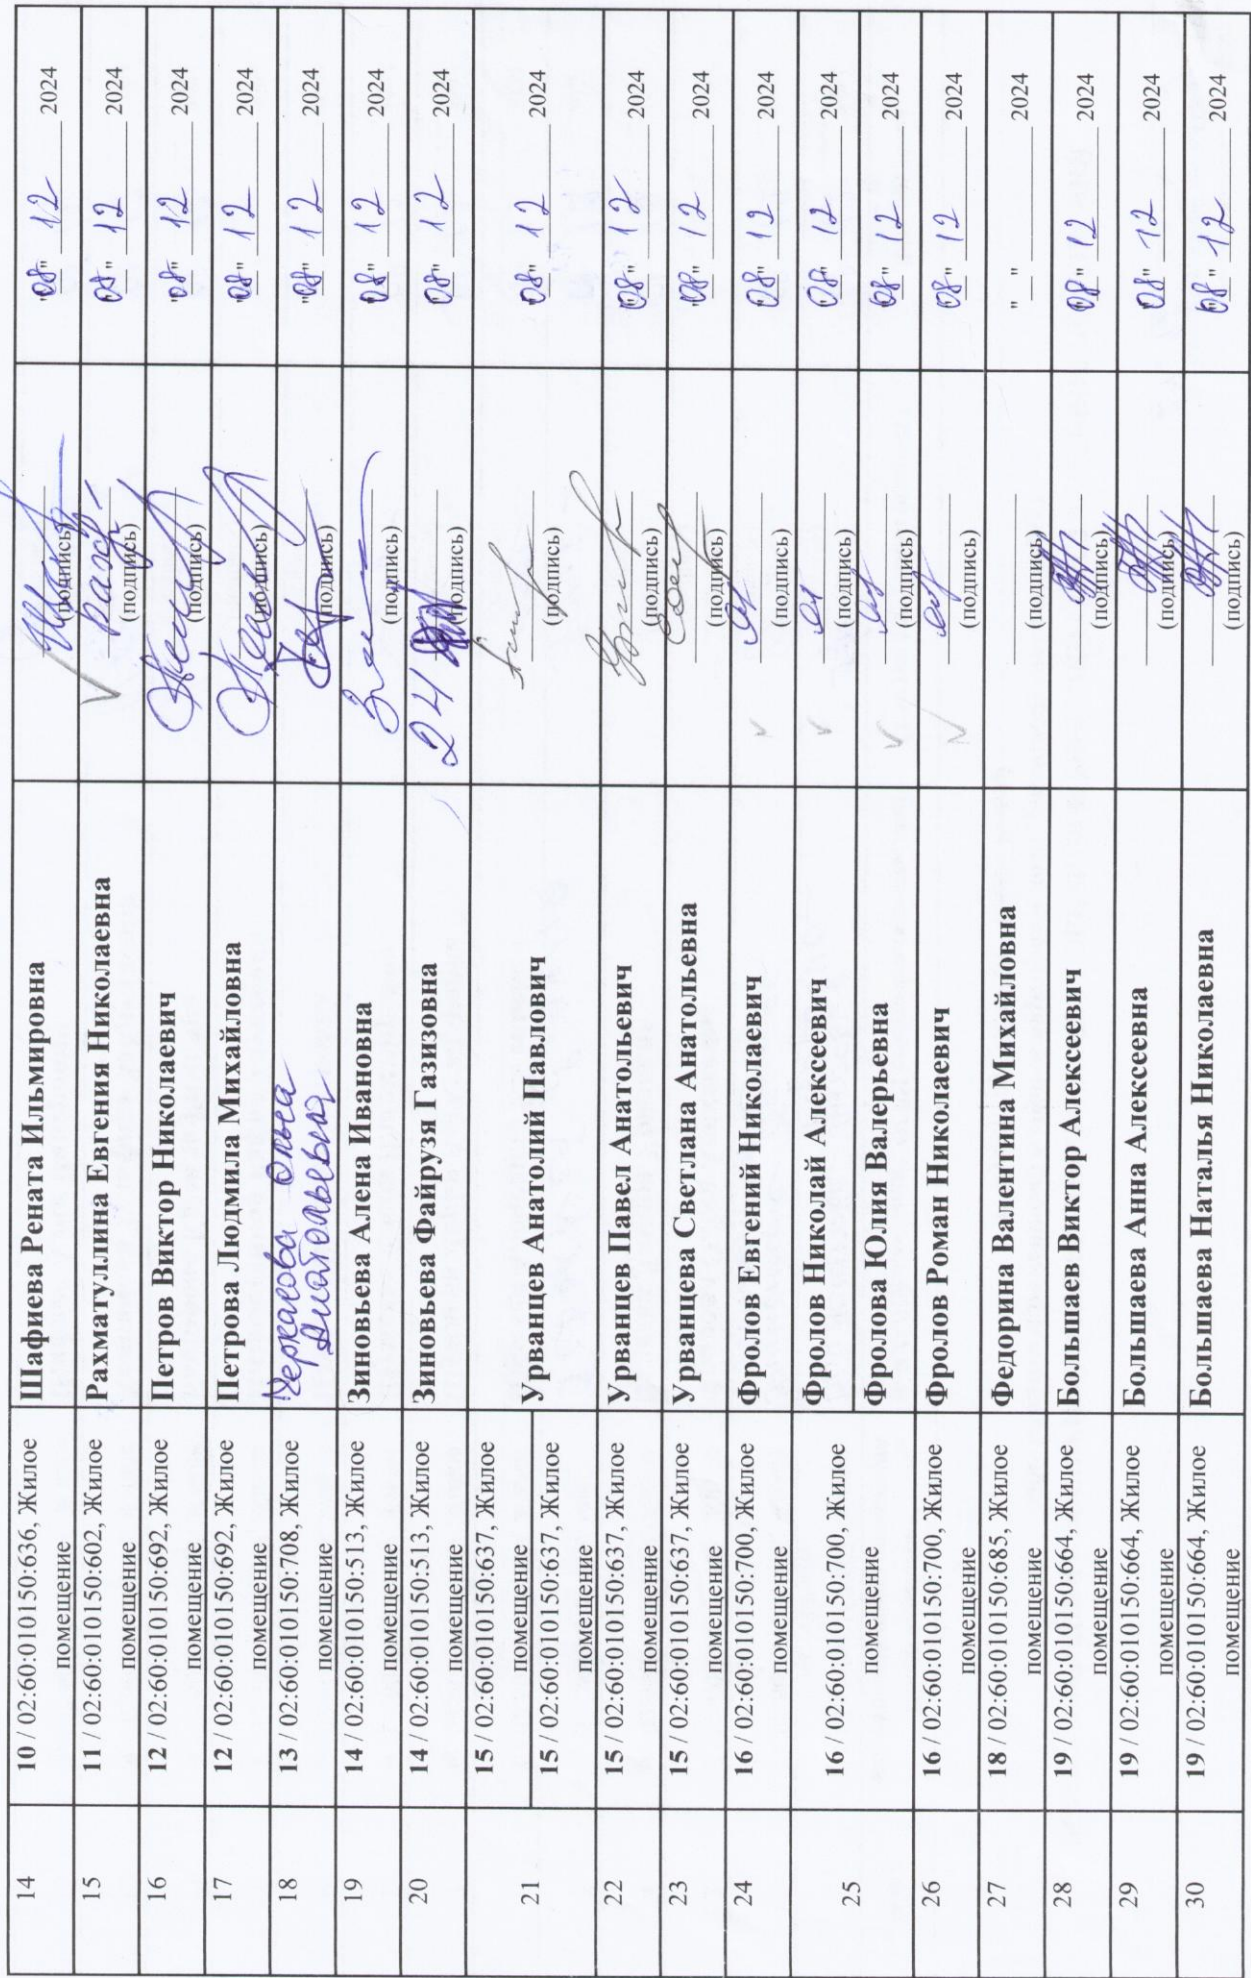 14 10 / 02:60:010150:636, Жилое помещение Шафиева Рената Ильмировна (подпись) "08" 12 2024
15 11 / 02:60:010150:602, Жилое помещение Рахматуллина Евгения Николаевна (подпись) "08" 12 2024
16 12 / 02:60:010150:692, Жилое помещение Петров Виктор Николаевич (подпись) "08" 12 2024
17 12 / 02:60:010150:692, Жилое помещение Петрова Людмила Михайловна (подпись) "08" 12 2024
18 13 / 02:60:010150:708, Жилое помещение Черкасова Ольга Анатольевна (подпись) "08" 12 2024
19 14 / 02:60:010150:513, Жилое помещение Зиновьева Алена Ивановна (подпись) "08" 12 2024
20 14 / 02:60:010150:513, Жилое помещение Зиновьева Файрузя Газизовна (подпись) "08" 12 2024
21 15 / 02:60:010150:637, Жилое помещение
15 / 02:60:010150:637, Жилое помещение Урванцев Анатолий Павлович (подпись) "08" 12 2024
22 15 / 02:60:010150:637, Жилое помещение Урванцев Павел Анатольевич (подпись) "08" 12 2024
23 15 / 02:60:010150:637, Жилое помещение Урванцева Светлана Анатольевна (подпись) "08" 12 2024
24 16 / 02:60:010150:700, Жилое помещение Фролов Евгений Николаевич (подпись) "08" 12 2024
25 16 / 02:60:010150:700, Жилое помещение Фролов Николай Алексеевич (подпись) "08" 12 2024
Фролова Юлия Валерьевна (подпись) "08" 12 2024
26 16 / 02:60:010150:700, Жилое помещение Фролов Роман Николаевич (подпись) "08" 12 2024
27 18 / 02:60:010150:685, Жилое помещение Федорина Валентина Михайловна (подпись) "__" 2024
28 19 / 02:60:010150:664, Жилое помещение Большаев Виктор Алексеевич (подпись) "08" 12 2024
29 19 / 02:60:010150:664, Жилое помещение Большаева Анна Алексеевна (подпись) "08" 12 2024
30 19 / 02:60:010150:664, Жилое помещение Большаева Наталья Николаевна (подпись) "08" 12 2024